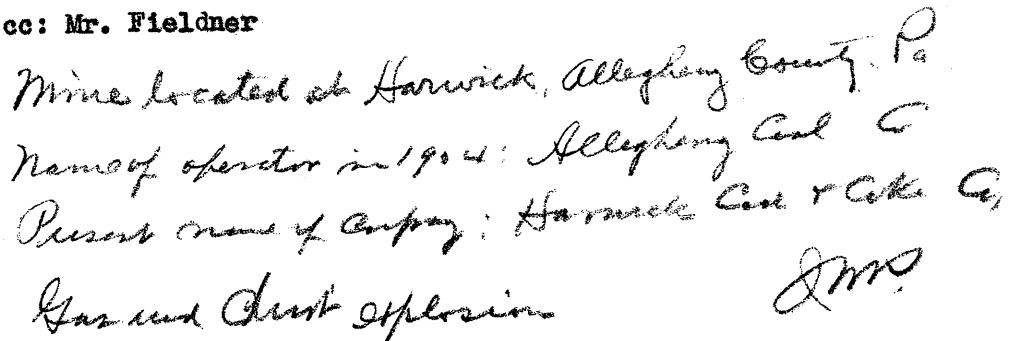 cc: Mr. Fieldner
Mine located at Harwick, Allegheny County. Pa
Name of operator in 1904: Allegheny Coal Co
Present name of Company: Harwick Coal & Coke Co,
Gas and Dust explosion